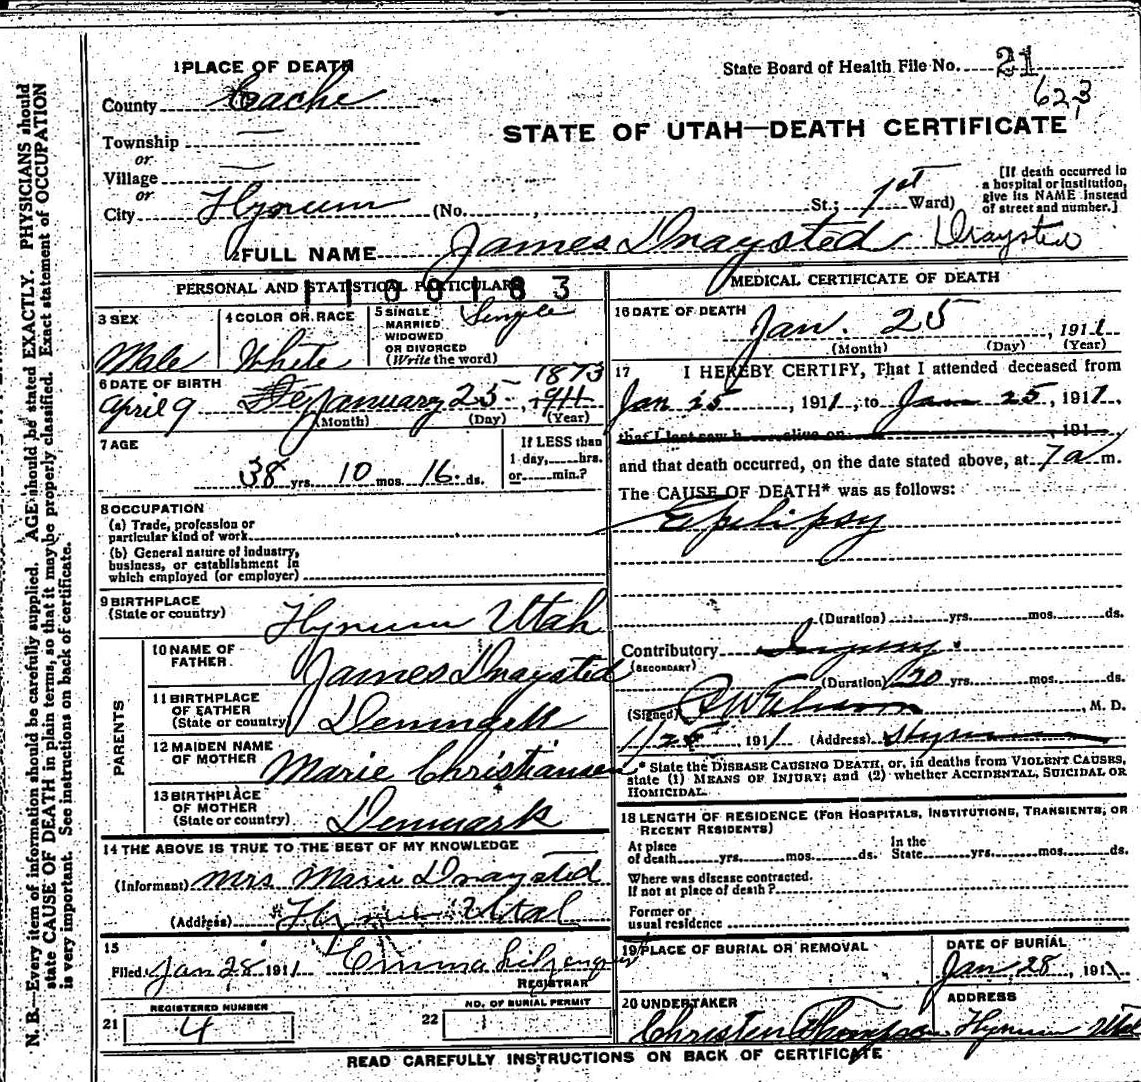 1 PLACE OF DEATH
State Board of Health File No. 21
623
County Cache
STATE OF UTAH—DEATH CERTIFICATE
Township
or
Village
or
City Hyrum (No. , St.; 1st Ward)
[If death occurred in
a hospital or institution,
give its NAME instead
of street and number.]
2 FULL NAME James Draysted Draysted
PERSONAL AND STATISTICAL PARTICULARS
3 SEX
Male
4 COLOR OR RACE
White
5 SINGLE
MARRIED
WIDOWED
OR DIVORCED
(Write the word)
Single
6 DATE OF BIRTH
April 9 January 25, 1911 1873
(Month) (Day) (Year)
7 AGE
38 yrs. 10 mos. 16 ds.
If LESS than
1 day, hrs.
or min.?
8 OCCUPATION
(a) Trade, profession or
particular kind of work
(b) General nature of industry,
business, or establishment in
which employed (or employer)
9 BIRTHPLACE
(State or country)
Hyrum Utah
PARENTS
10 NAME OF
FATHER
James Draysted
11 BIRTHPLACE
OF FATHER
(State or country)
Denmark
12 MAIDEN NAME
OF MOTHER
Marie Christiansen
13 BIRTHPLACE
OF MOTHER
(State or country)
Denmark
14 THE ABOVE IS TRUE TO THE BEST OF MY KNOWLEDGE
(Informant) Mrs Marie Draysted
(Address) Hyrum Utah
15
Filed Jan 28 1911 Emma
REGISTRAR
REGISTERED NUMBER
21 4
NO. OF BURIAL PERMIT
22
MEDICAL CERTIFICATE OF DEATH
16 DATE OF DEATH
Jan. 25, 1911
(Month) (Day) (Year)
17 I HEREBY CERTIFY, That I attended deceased from
Jan 25, 1911, to Jan 25, 1911,
that I last saw h alive on 191
and that death occurred, on the date stated above, at 7 a m.
The CAUSE OF DEATH* was as follows:
Epilipsy
(Duration) yrs. mos. ds.
Contributory Injury.
(SECONDARY)
(Duration) 20 yrs. mos. ds.
(Signed) M. D.
1/25, 1911 (Address) Hyrum
* State the DISEASE CAUSING DEATH, or, in deaths from VIOLENT CAUSES,
state (1) MEANS OF INJURY; and (2) whether ACCIDENTAL, SUICIDAL OR
HOMICIDAL.
18 LENGTH OF RESIDENCE (FOR HOSPITALS, INSTITUTIONS, TRANSIENTS, OR
RECENT RESIDENTS)
At place
of death yrs. mos. ds.
In the
State yrs. mos. ds.
Where was disease contracted.
If not at place of death?
Former or
usual residence
19 PLACE OF BURIAL OR REMOVAL
DATE OF BURIAL
Jan 28, 1911
20 UNDERTAKER
Christen Thompson
ADDRESS
Hyrum Utah
READ CAREFULLY INSTRUCTIONS ON BACK OF CERTIFICATE
N. B.—Every item of information should be carefully supplied. AGE should be stated EXACTLY. PHYSICIANS should
state CAUSE OF DEATH in plain terms, so that it may be properly classified. Exact statement of OCCUPATION
is very important. See instructions on back of certificate.